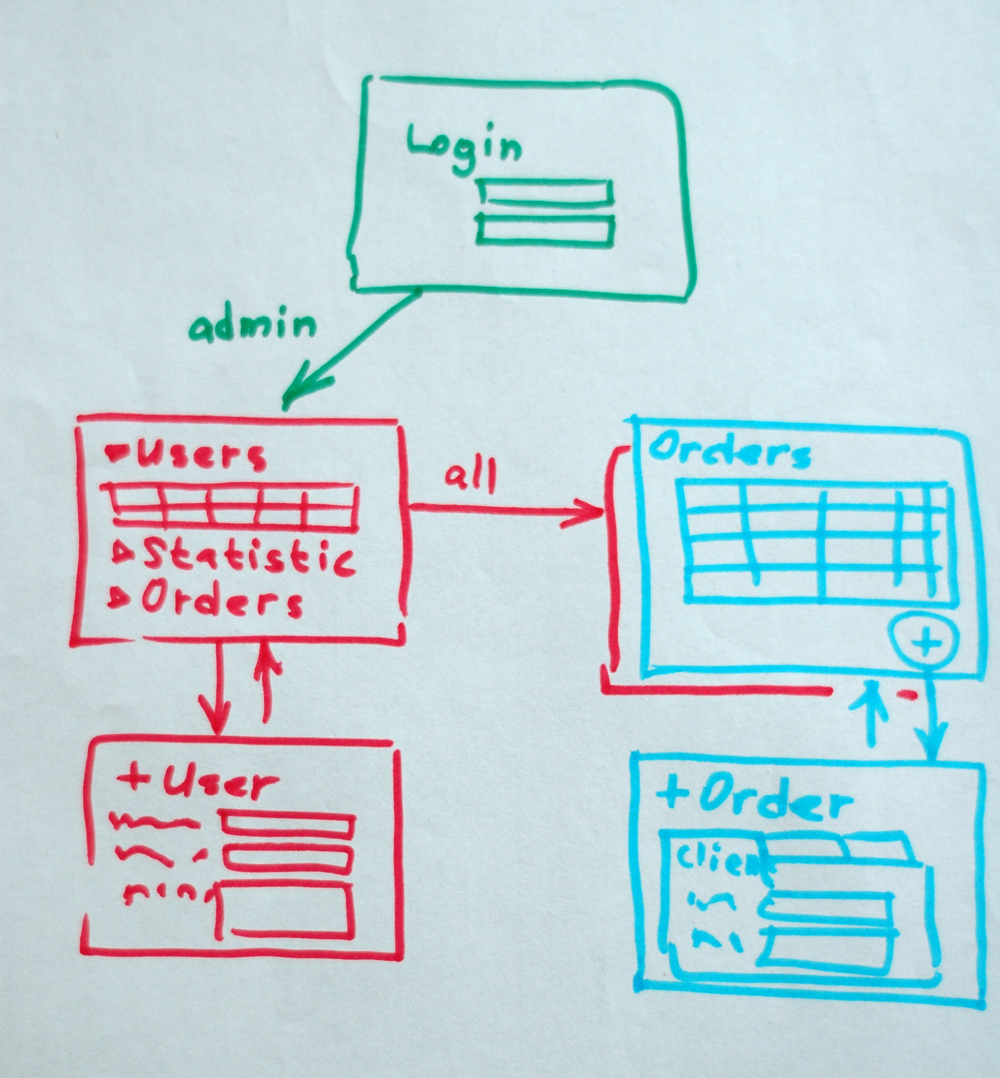 Login
admin
Users
Statistic
Orders
all
Orders
+
+User
+Order
client